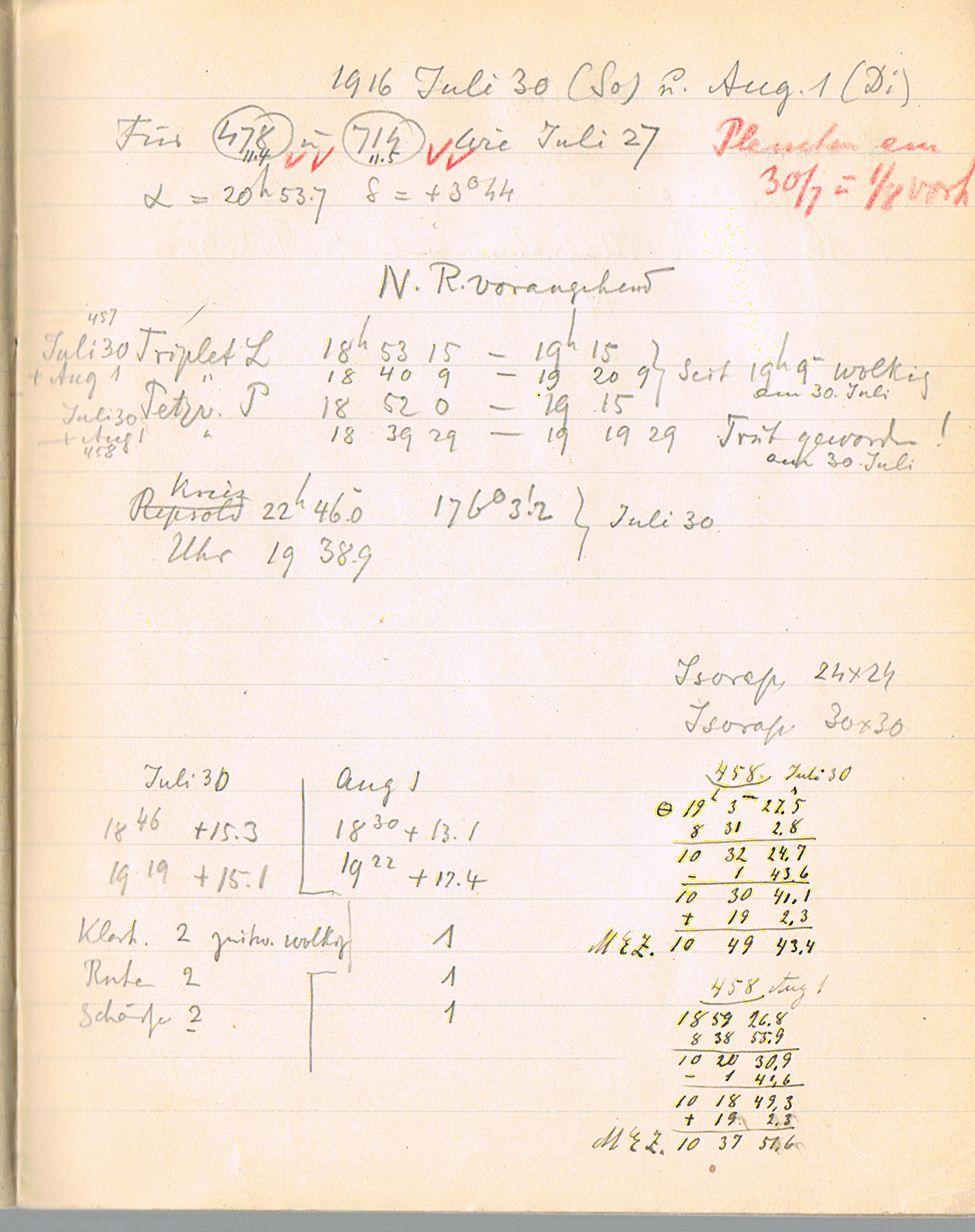 1916 Juli 30 (So) u. Aug. 1 (Di)
Für 478 u 714 wie Juli 27
11.4 11.5
am
30/7 u 1/8 vorh
α = 20h 53.7 δ = +3° 44
N. R. vorangehend
457
Juli 30 Triplet L 18h 53 15 — 19h 15
+ Aug 1 " 18 40 9 — 19 20 9 } Seit 19h 9m wolkig
am 30. Juli
Juli 30 Petzv. P 18 52 0 — 19 15
+ Aug 1 " 18 39 29 — 19 19 29 Trüb geworden!
458 am 30 Juli
Kreis
Repsold 22h 46.0 176° 3!2 } Juli 30
Uhr 19 38.9
Isorap. 24x24
Isorap 30x30
Juli 30 Aug 1
18 46 +15.3 18 30 + 13.1
19 19 +15.1 19 22 + 12.4
Klarh. 2 zeitw. wolkig 1
Ruhe 2 1
Schärfe 2 1
458. Juli 30
θ 19h 3m 27.5
8 31 2.8
10 32 24.7
- 1 43.6
10 30 41.1
+ 19 2.3
M E Z. 10 49 43.4
458 Aug 1
18 59 26.8
8 38 55.9
10 20 30.9
- 1 41.6
10 18 49.3
+ 19 2.3
M E Z. 10 37 51.6